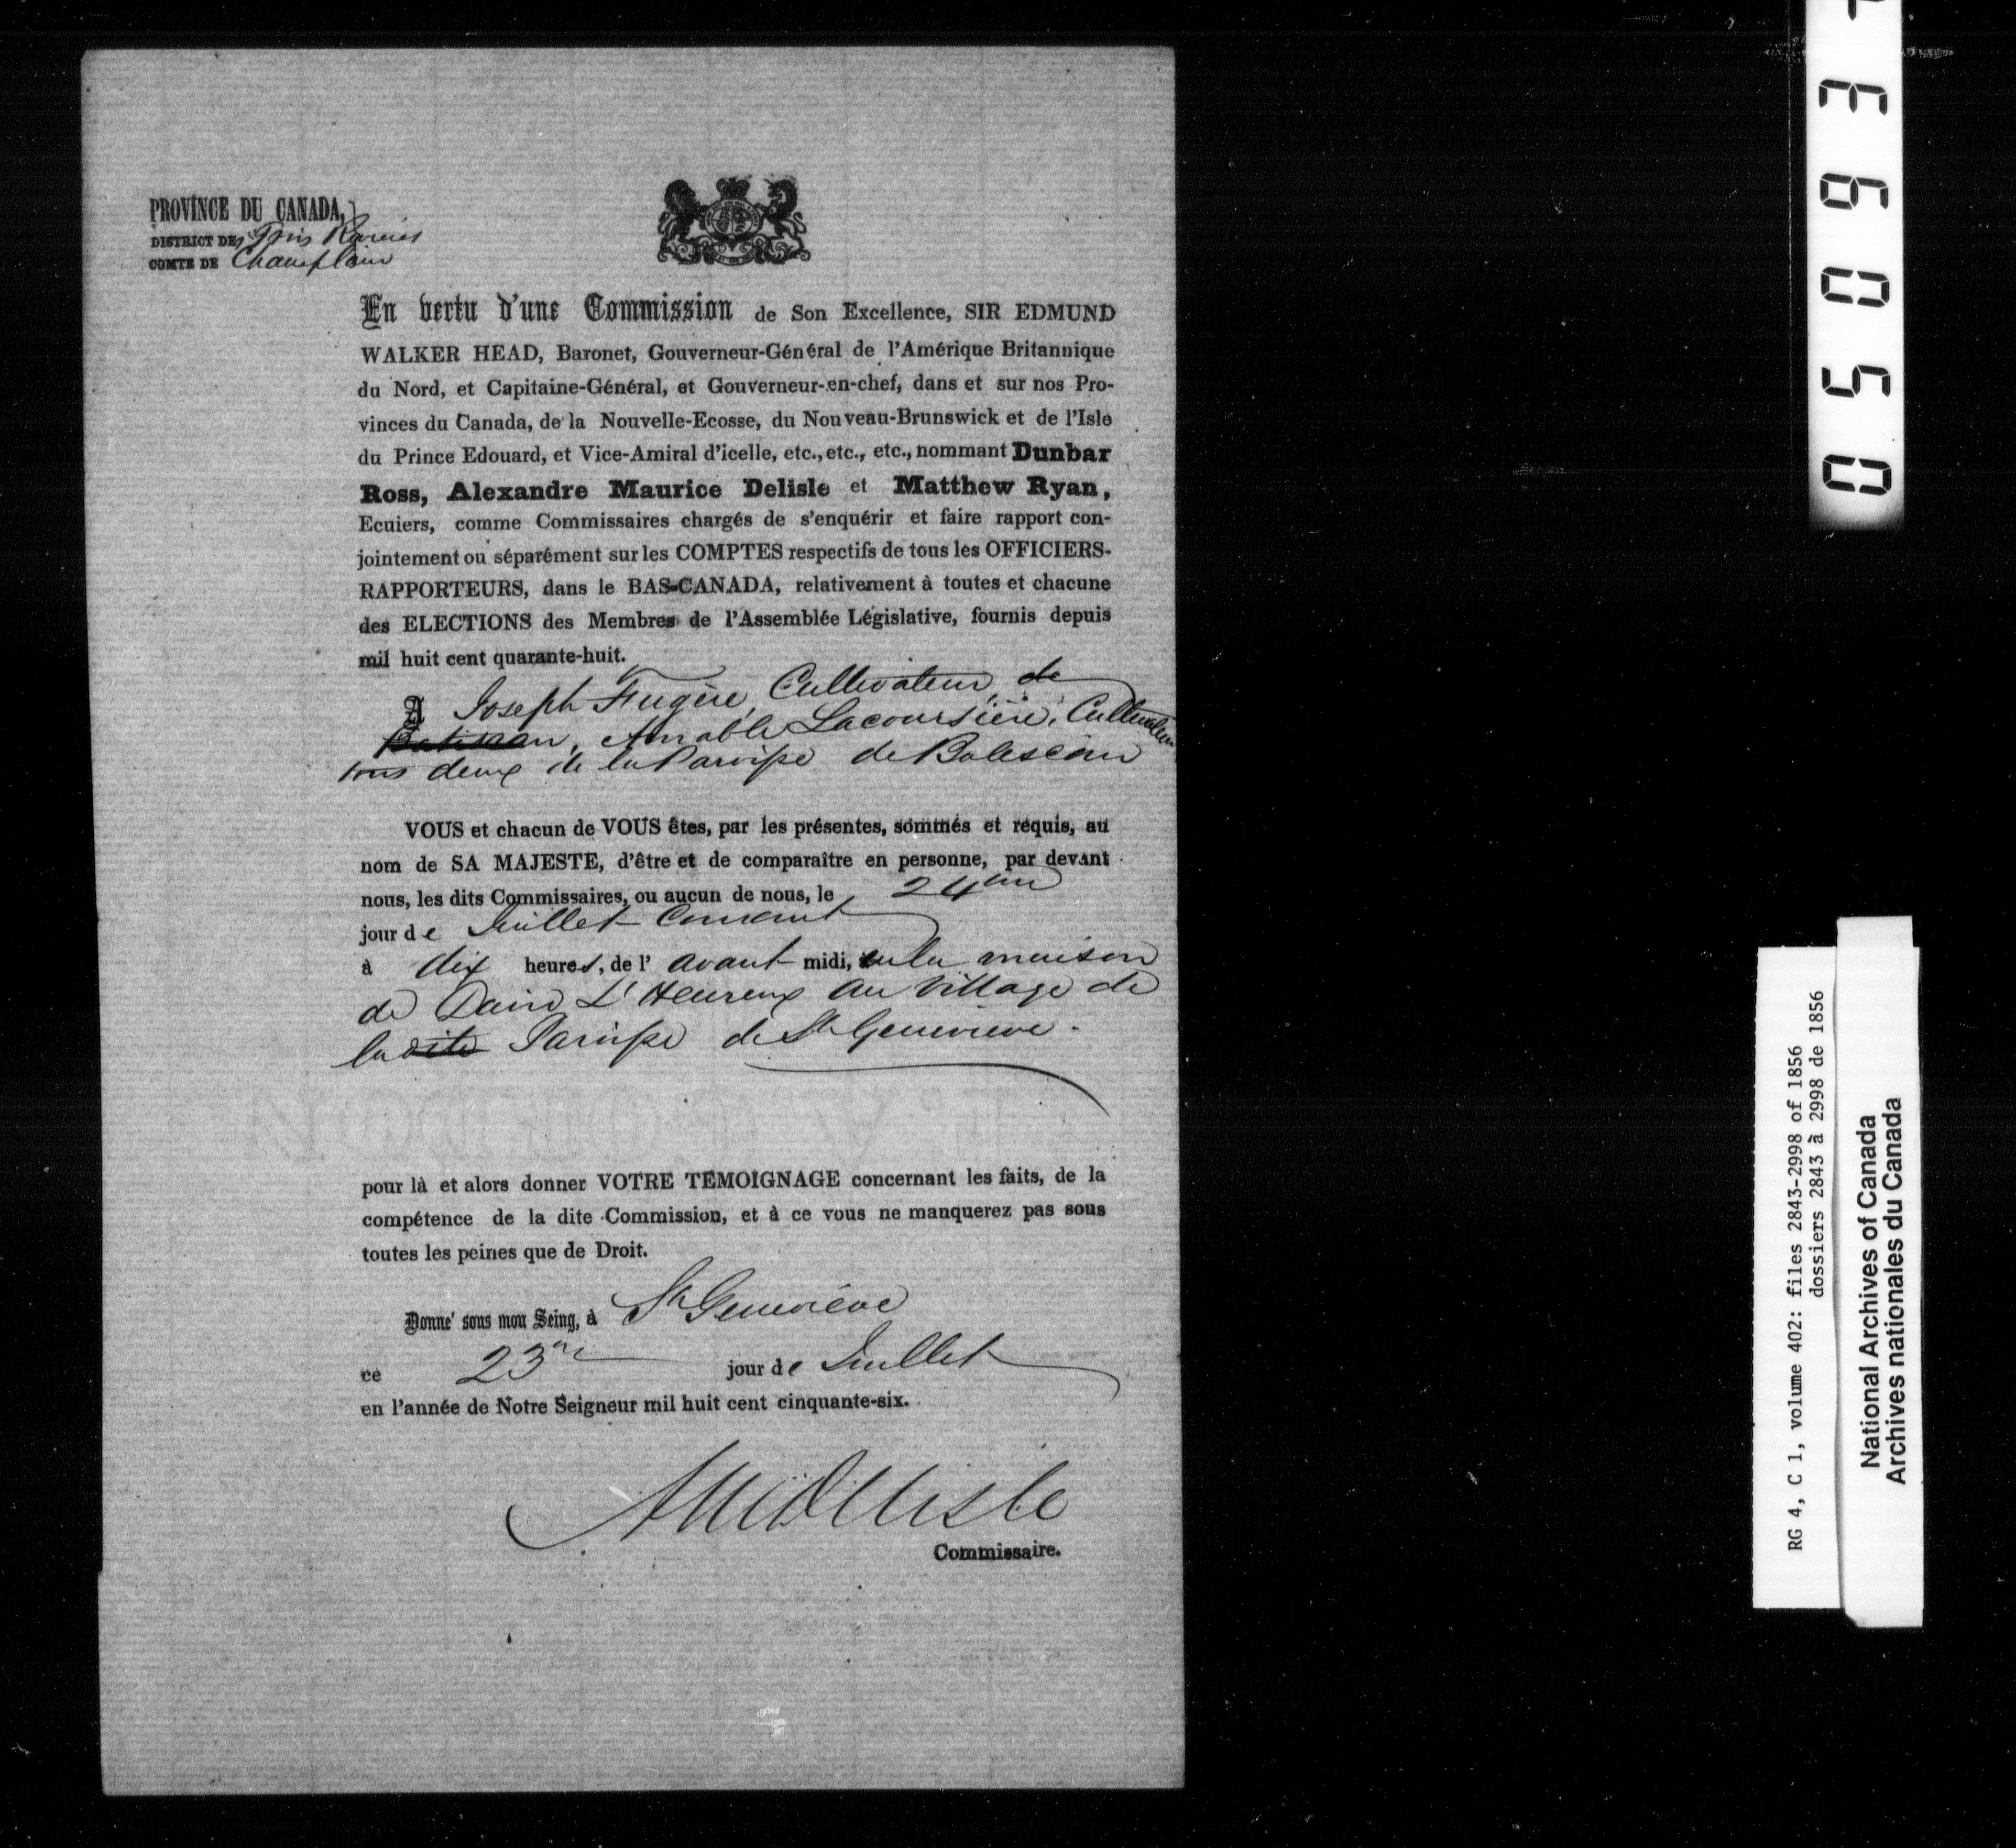 PROVINCE DU CANADA,
DISTRICT DES Trois Rivières
COMTE DE Champlain
En vertu d'une Commission de Son Excellence, SIR EDMUND
WALKER HEAD, Baronet, Gouverneur-Général de l'Amérique Britannique
du Nord, et Capitaine-Général, et Gouverneur-en-chef, dans et sur nos Pro-
vinces du Canada, de la Nouvelle-Ecosse, du Nouveau-Brunswick et de l'Isle
du Prince Edouard, et Vice-Amiral d'icelle, etc., etc., etc., nommant Dunbar
Ross, Alexandre Maurice Delisle et Matthew Ryan,
Ecuiers, comme Commissaires chargés de s'enquérir et faire rapport con-
jointement ou séparément sur les COMPTES respectifs de tous les OFFICIERS-
RAPPORTEURS, dans le BAS-CANADA, relativement à toutes et chacune
des ELECTIONS des Membres de l'Assemblée Législative, fournis depuis
mil huit cent quarante-huit.
A Joseph Fugère, Cultivateur, de
Batiscan, Amable Lacoursière, Cultivateur
tous deux de la Paroisse de Batiscan
VOUS et chacun de VOUS êtes, par les présentes, sommés et requis, au
nom de SA MAJESTE, d'être et de comparaître en personne, par devant
nous, les dits Commissaires, ou aucun de nous, le 24me
jour de Juillet Courant
à dix heures, de l' avant midi, en la maison
de David L'Heureux au Village de
la dite Paroisse de Ste Geneviève.
pour là et alors donner VOTRE TEMOIGNAGE concernant les faits, de la
compétence de la dite Commission, et à ce vous ne manquerez pas sous
toutes les peines que de Droit.
Donné sous mon Seing, à Ste Geneviève
ce 23me jour de Juillet
en l'année de Notre Seigneur mil huit cent cinquante-six.
AMDelisle
Commissaire.
RG 4, C 1, volume 402: files 2843-2998 of 1856
dossiers 2843 à 2998 de 1856
National Archives of Canada
Archives nationales du Canada